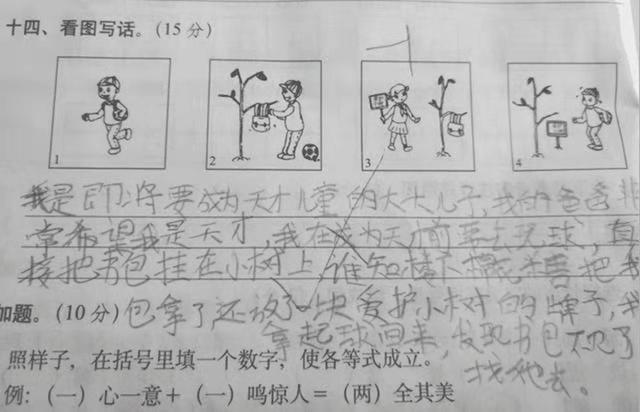 十四、看图写话。(15分)
1
2
3
4
我是即将要成为天才儿童的大大儿子,我的爸爸非
常希望我是天才,我在成为天才前要去玩球,直
接把书包挂在小树上,谁知楼下 把我
包拿了还放了一块爱护小树的牌子,我
拿起球回来,发现书包不见了
找他去。
加题。(10分)
照样子,在括号里填一个数字,使各等式成立。
例:(一)心一意+(一)鸣惊人=(两)全其美